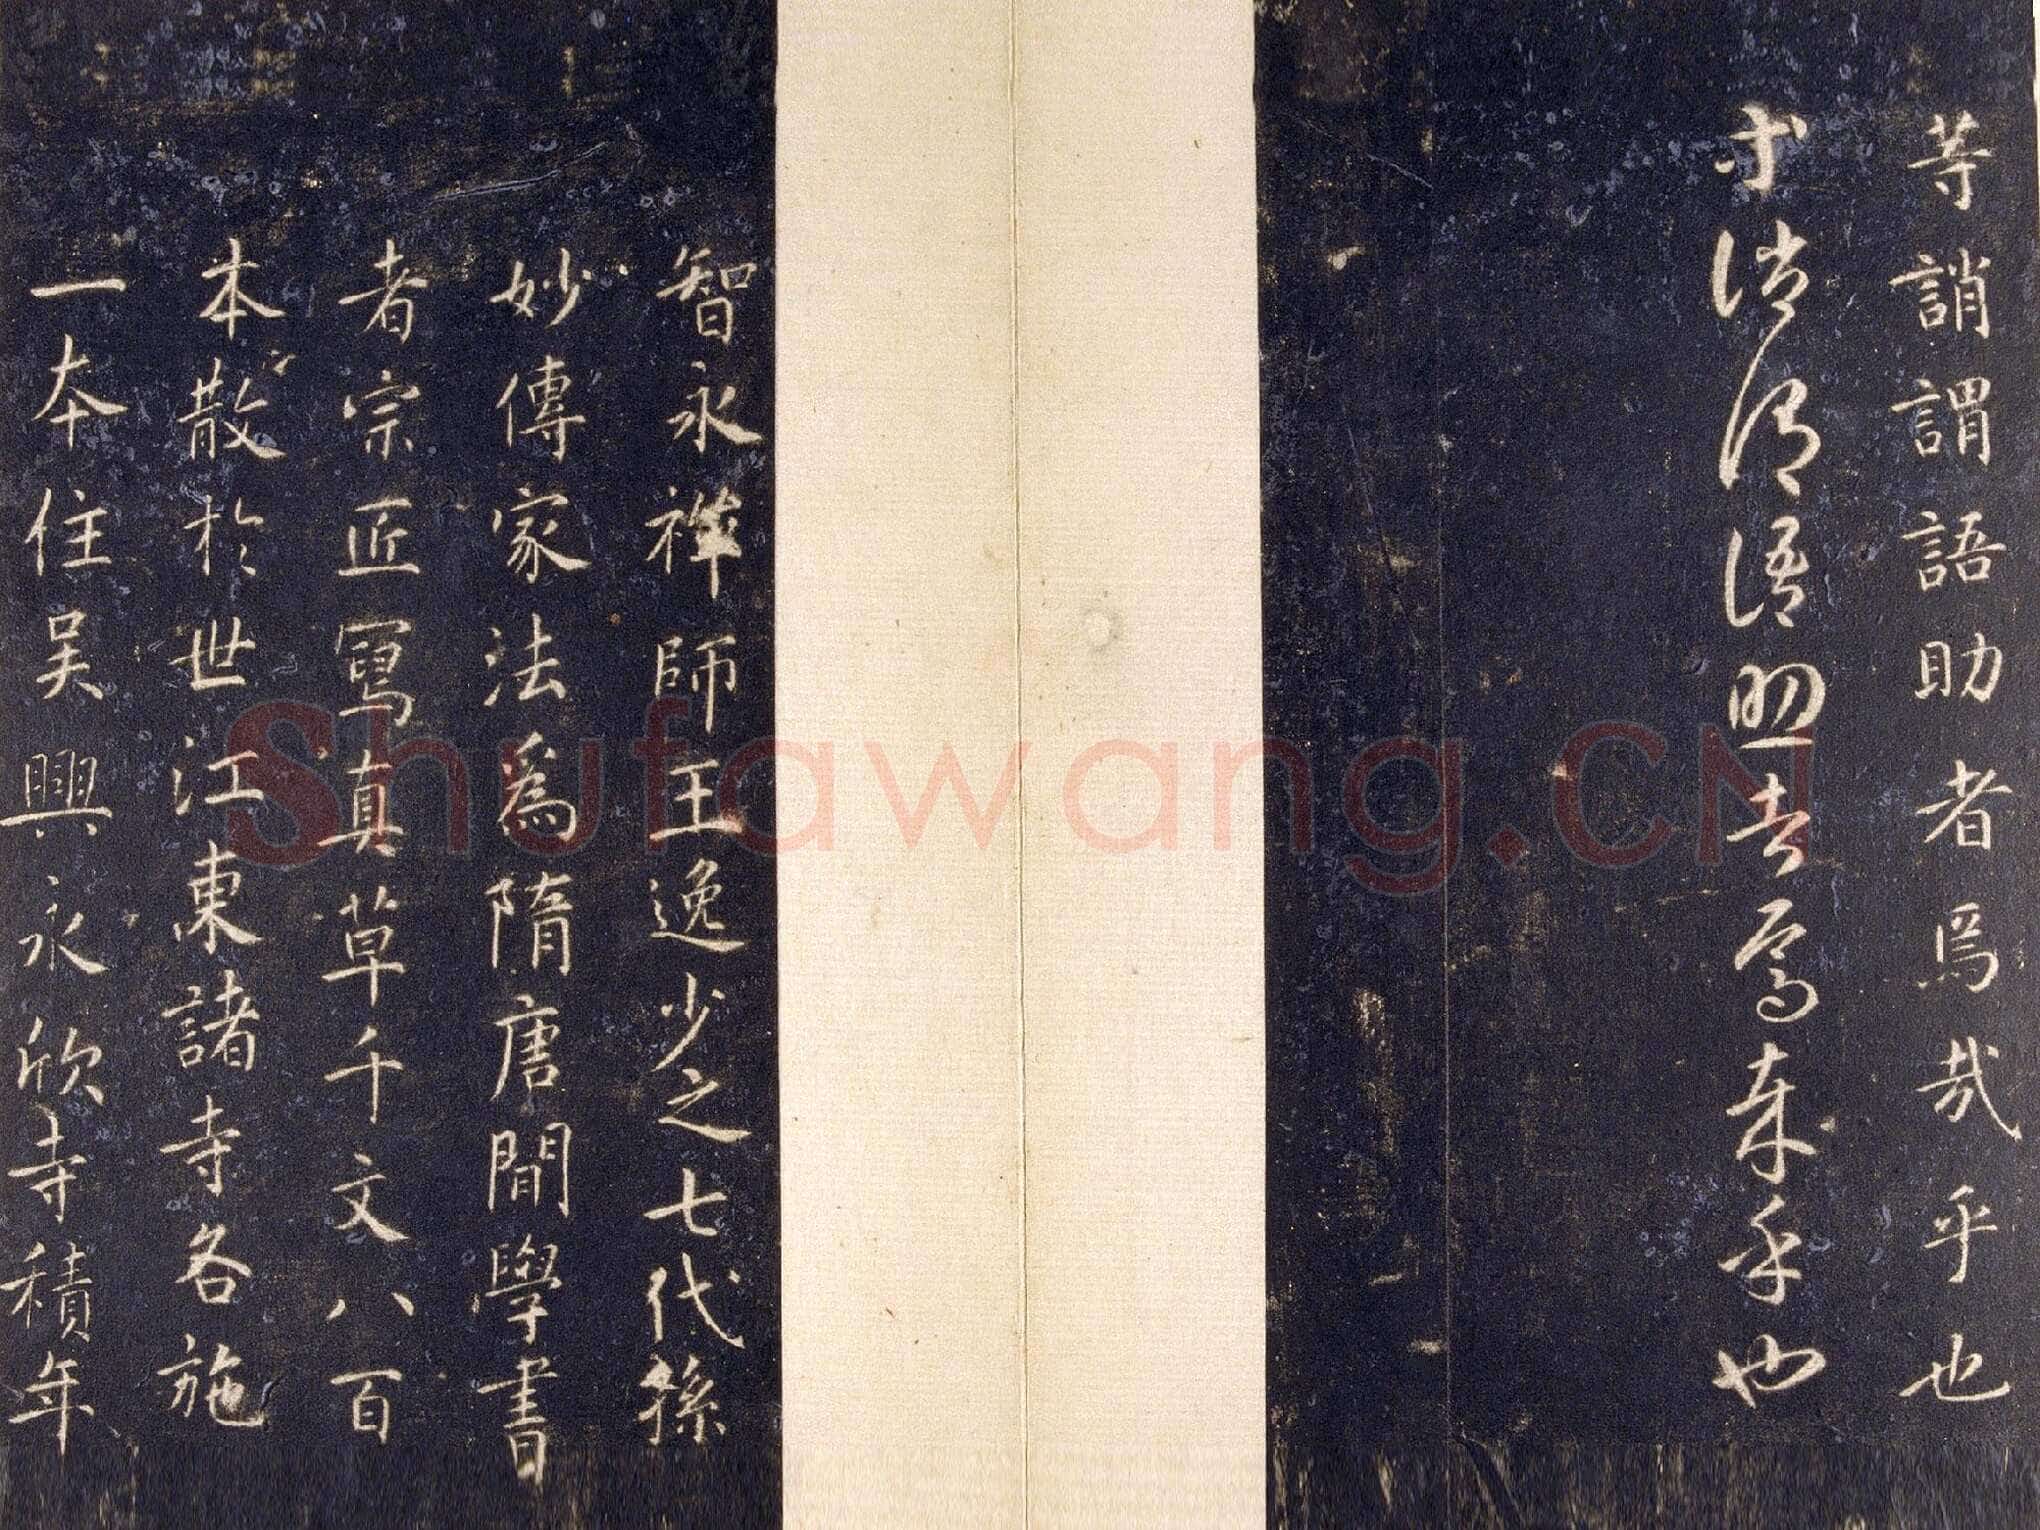 等誚謂語助者焉哉乎也
等誚謂語助者焉哉乎也
智永禅師王逸少之七代孫
妙傳家法爲隋唐間學書
者宗匠寫真草千文八百
本散於世江東諸寺各施
一本住吴興永欣寺積年
Shufawang.CN